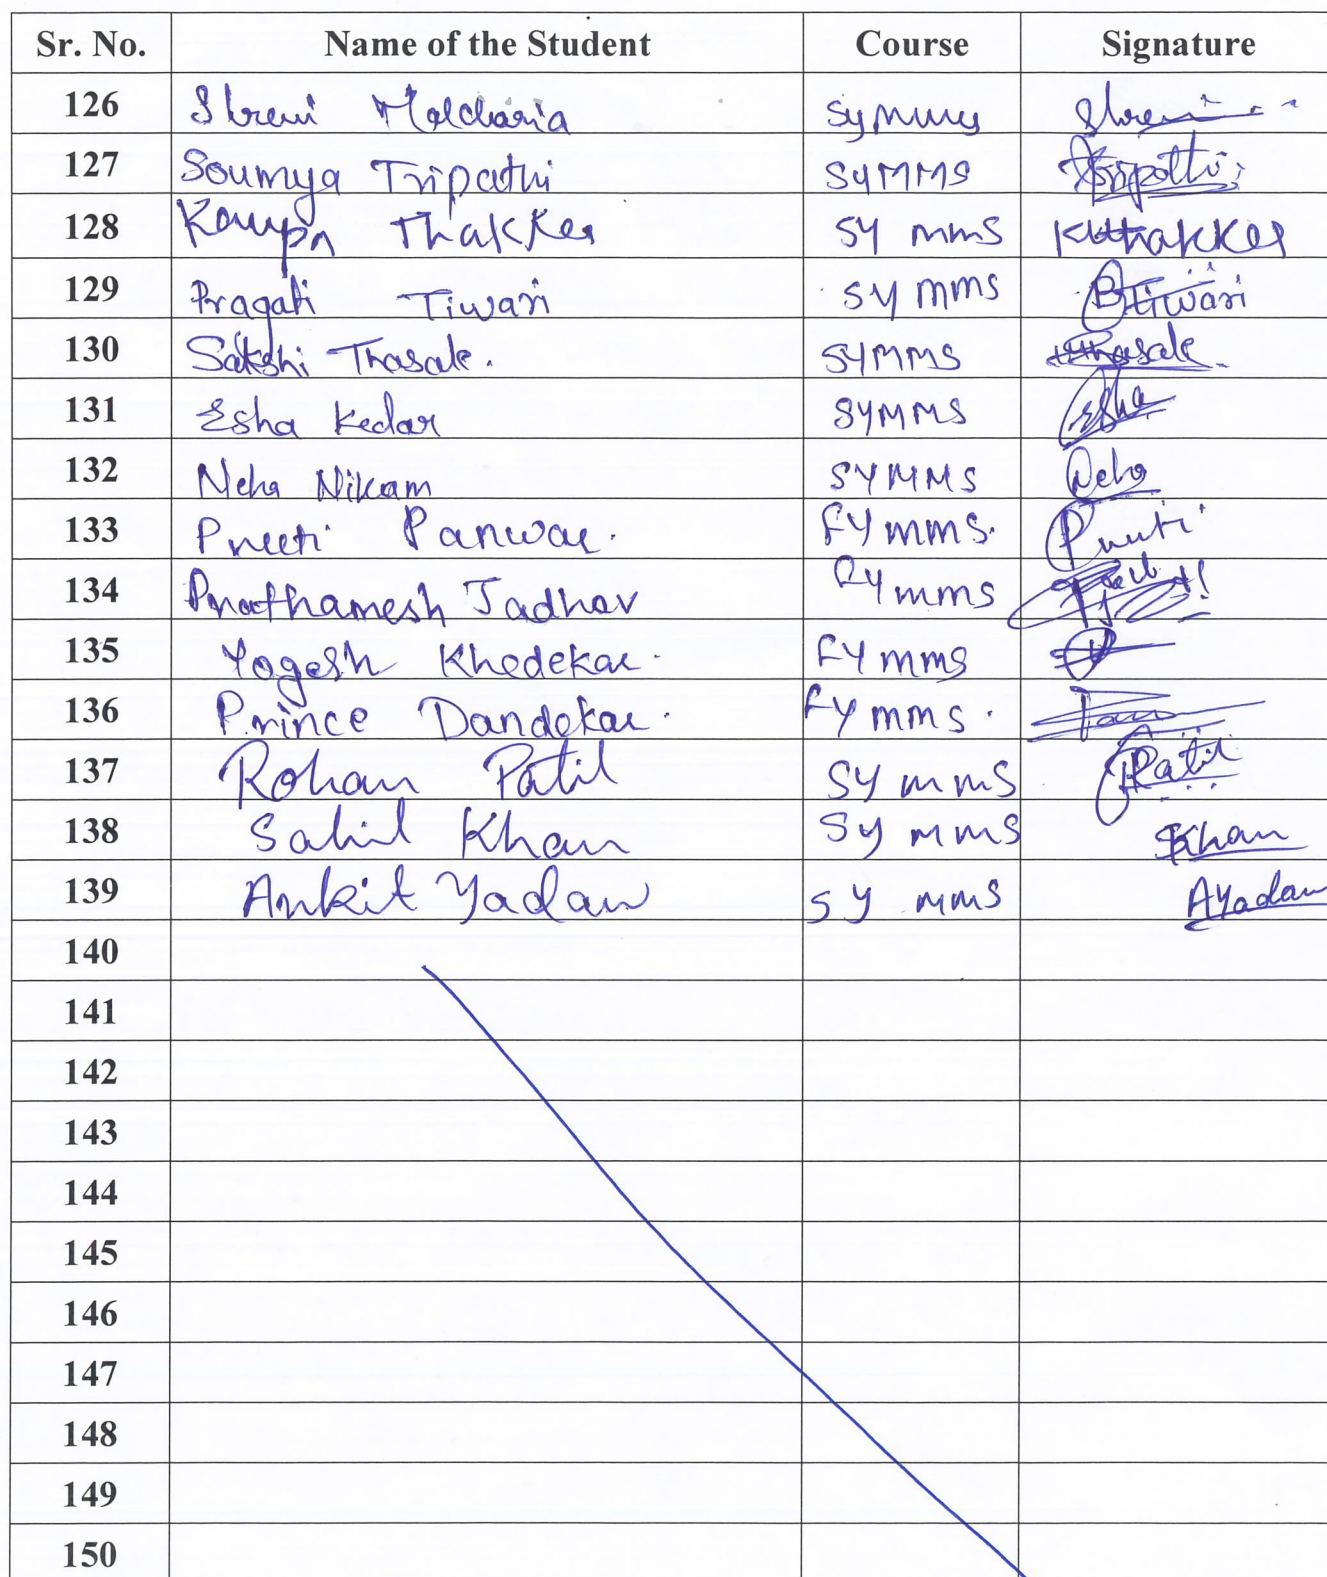 Sr. No. Name of the Student Course Signature
126 symmy
127 Soumya Tripathi SYMMS Tripathi
128 Thakker SY mms KThakker
129 Pragati Tiwari SY mms PTiwari
130 Sakshi Thasale. SYMMS Thasale
131 Esha Kedar SYMMS Esha
132 Neha Nikam SYMMS Neha
133 Preeti Panwar. FY mms. Preeti
134 Prathamesh Jadhav FY mms
135 Yogesh Khedekar. FY mms
136 Prince Dandekar. FY mms.
137 Rohan Patil SY mms RPatil
138 Sahil Khan SY mms SKhan
139 Ankit Yadav SY mms AYadav
140
141
142
143
144
145
146
147
148
149
150